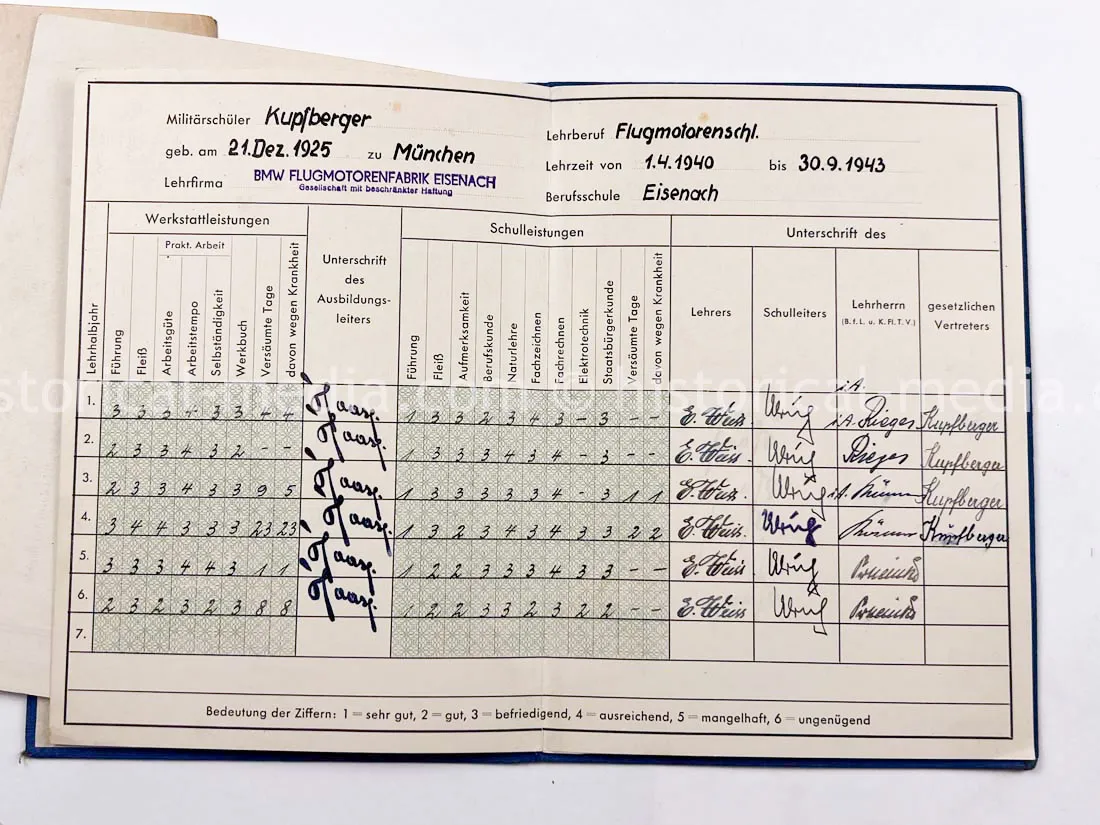 Militärschüler Kupfberger
geb. am 21. Dez. 1925 zu München
Lehrfirma BMW FLUGMOTORENFABRIK EISENACH
Gesellschaft mit beschränkter Haftung
Lehrberuf Flugmotorenschl.
Lehrzeit von 1.4.1940 bis 30.9.1943
Berufsschule Eisenach
Werkstattleistungen
Schulleistungen
Unterschrift des
Prakt. Arbeit
Lehrhalbjahr
Führung
Fleiß
Arbeitsgüte
Arbeitstempo
Selbständigkeit
Werkbuch
Versäumte Tage
davon wegen Krankheit
Unterschrift
des
Ausbildungs-
leiters
Führung
Fleiß
Aufmerksamkeit
Berufskunde
Naturlehre
Fachzeichnen
Fachrechnen
Elektrotechnik
Staatsbürgerkunde
Versäumte Tage
davon wegen Krankheit
Lehrers
Schulleiters
Lehrherrn
(B. f. L. u. K. Fl. T. V.)
gesetzlichen
Vertreters
1. 3 3 3 4 3 3 4 4 1 3 3 2 3 4 3 – 3 – – E. Weiss i.A. Rieger Kupfberger
2. 2 3 3 4 3 2 – – 1 3 3 3 3 4 3 4 – 3 – – E. Weiss Rieger Kupfberger
3. 2 3 3 4 3 3 9 5 1 3 3 3 3 3 4 – 3 1 1 E. Weiss i.A. Kupfberger
4. 3 4 4 3 3 3 23 23 1 3 2 3 4 3 4 3 3 2 2 E. Weiss Kupfberger
5. 3 3 3 4 4 3 1 1 1 2 2 3 3 3 4 3 3 – – E. Weiss
6. 2 3 2 3 2 3 8 8 1 2 2 3 3 2 3 2 2 – – E. Weiss
7.
Bedeutung der Ziffern: 1 = sehr gut, 2 = gut, 3 = befriedigend, 4 = ausreichend, 5 = mangelhaft, 6 = ungenügend
historical-media.com © historical-media.com